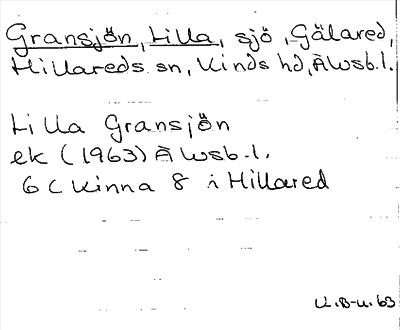 Gransjön, Lilla, sjö, Gälared,
Hillareds sn, Kinds hd, Älvsb.l.
Lilla Gransjön
ek (1963) Älvsb.l.
6 C Kinna 8 i Hillared
U.B-u. 63